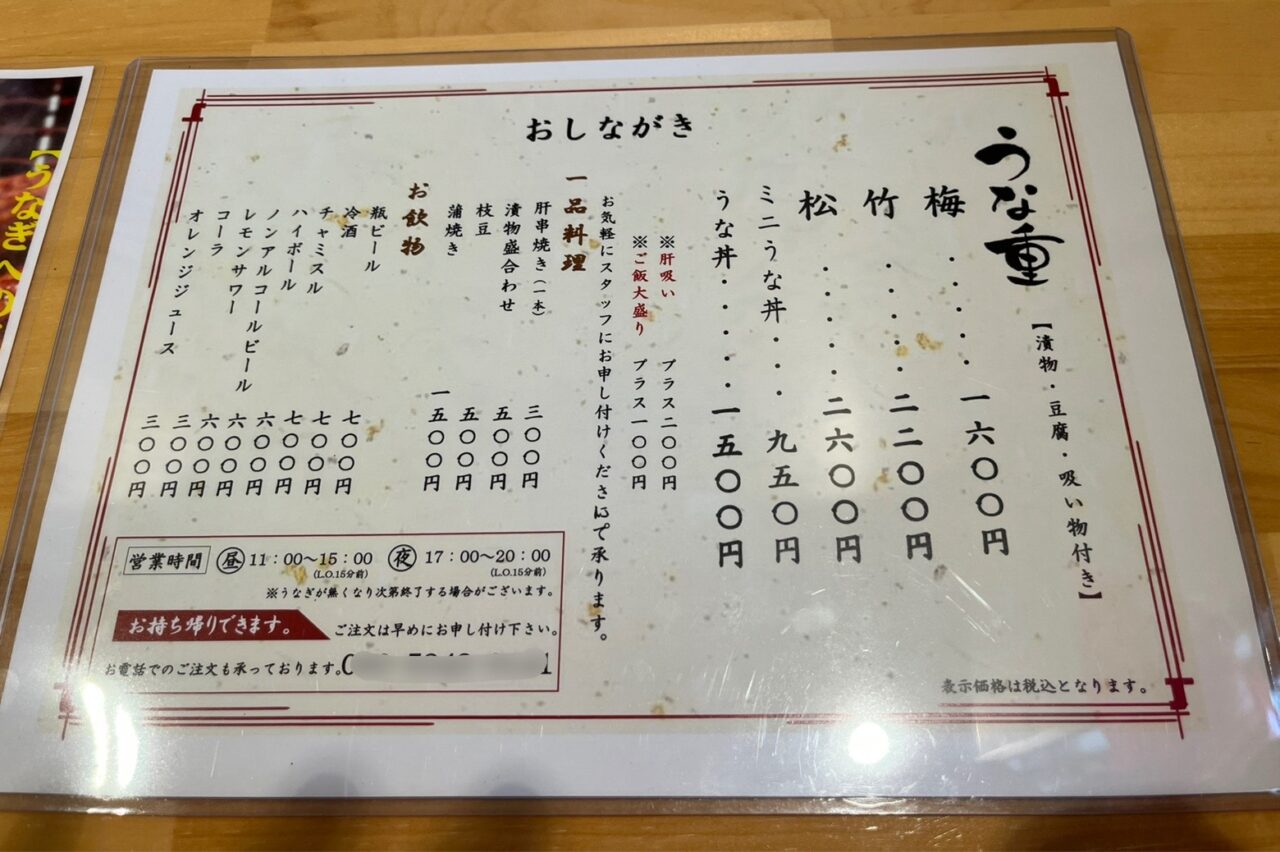 おしながき
うな重
【漬物・豆腐・吸い物付き】
梅・・・・・一六〇〇円
竹・・・・・二二〇〇円
松・・・・・二六〇〇円
ミニうな丼・・・九五〇円
うな丼・・・・・一五〇〇円
※肝吸い プラス二〇〇円
※ご飯大盛り プラス一〇〇円
お気軽にスタッフにお申し付けくださにて承ります。
一品料理
肝串焼き(一本) 三〇〇円
漬物盛合わせ 五〇〇円
枝豆 五〇〇円
蒲焼き 一五〇〇円
お飲物
瓶ビール 七〇〇円
冷酒 七〇〇円
チャミスル 七〇〇円
ハイボール 六〇〇円
ノンアルコールビール 六〇〇円
レモンサワー 六〇〇円
コーラ 三〇〇円
オレンジジュース 三〇〇円
営業時間 昼 11:00〜15:00 夜 17:00〜20:00
(L.O.15分前) (L.O.15分前)
※うなぎが無くなり次第終了する場合がございます。
お持ち帰りできます。 ご注文は早めにお申し付け下さい。
お電話でのご注文も承っております。
表示価格は税込となります。
【うなぎへの